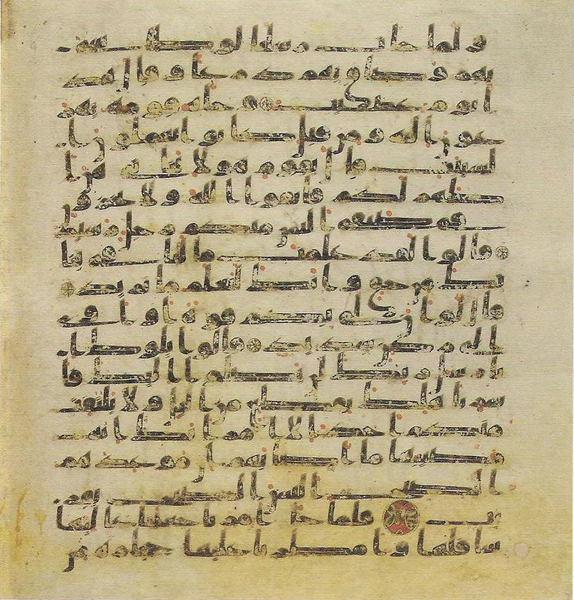 ولما جات رسلنا لوطا سى
بهم وضاق بهم ذرعا وقال هذ
ا يوم عصيب وجاه قومه يهر
عون اليه ومن قبل كانوا يعملون ا
لسيات قال يقوم هولا بناتى هن ا
طهر لكم فاتقوا الله ولا تخزون
فى ضيفى اليس منكم رجل رشيد
قالوا لقد علمت ما لنا فى بنا
تك من حق وانك لتعلم ما نريد
قال لو ان لى بكم قوة او اوى
الى ركن شديد قالوا يلوط ا
نا رسل ربك لن يصلوا اليك فا
سر باهلك بقطع من اليل ولا يلتفت
منكم احد الا امراتك انه
مصيبها ما اصابهم ان موعدهم
الصبح اليس الصبح بقر
يب فلما جا امرنا جعلنا عليها
سافلها وامطرنا عليها حجارة من